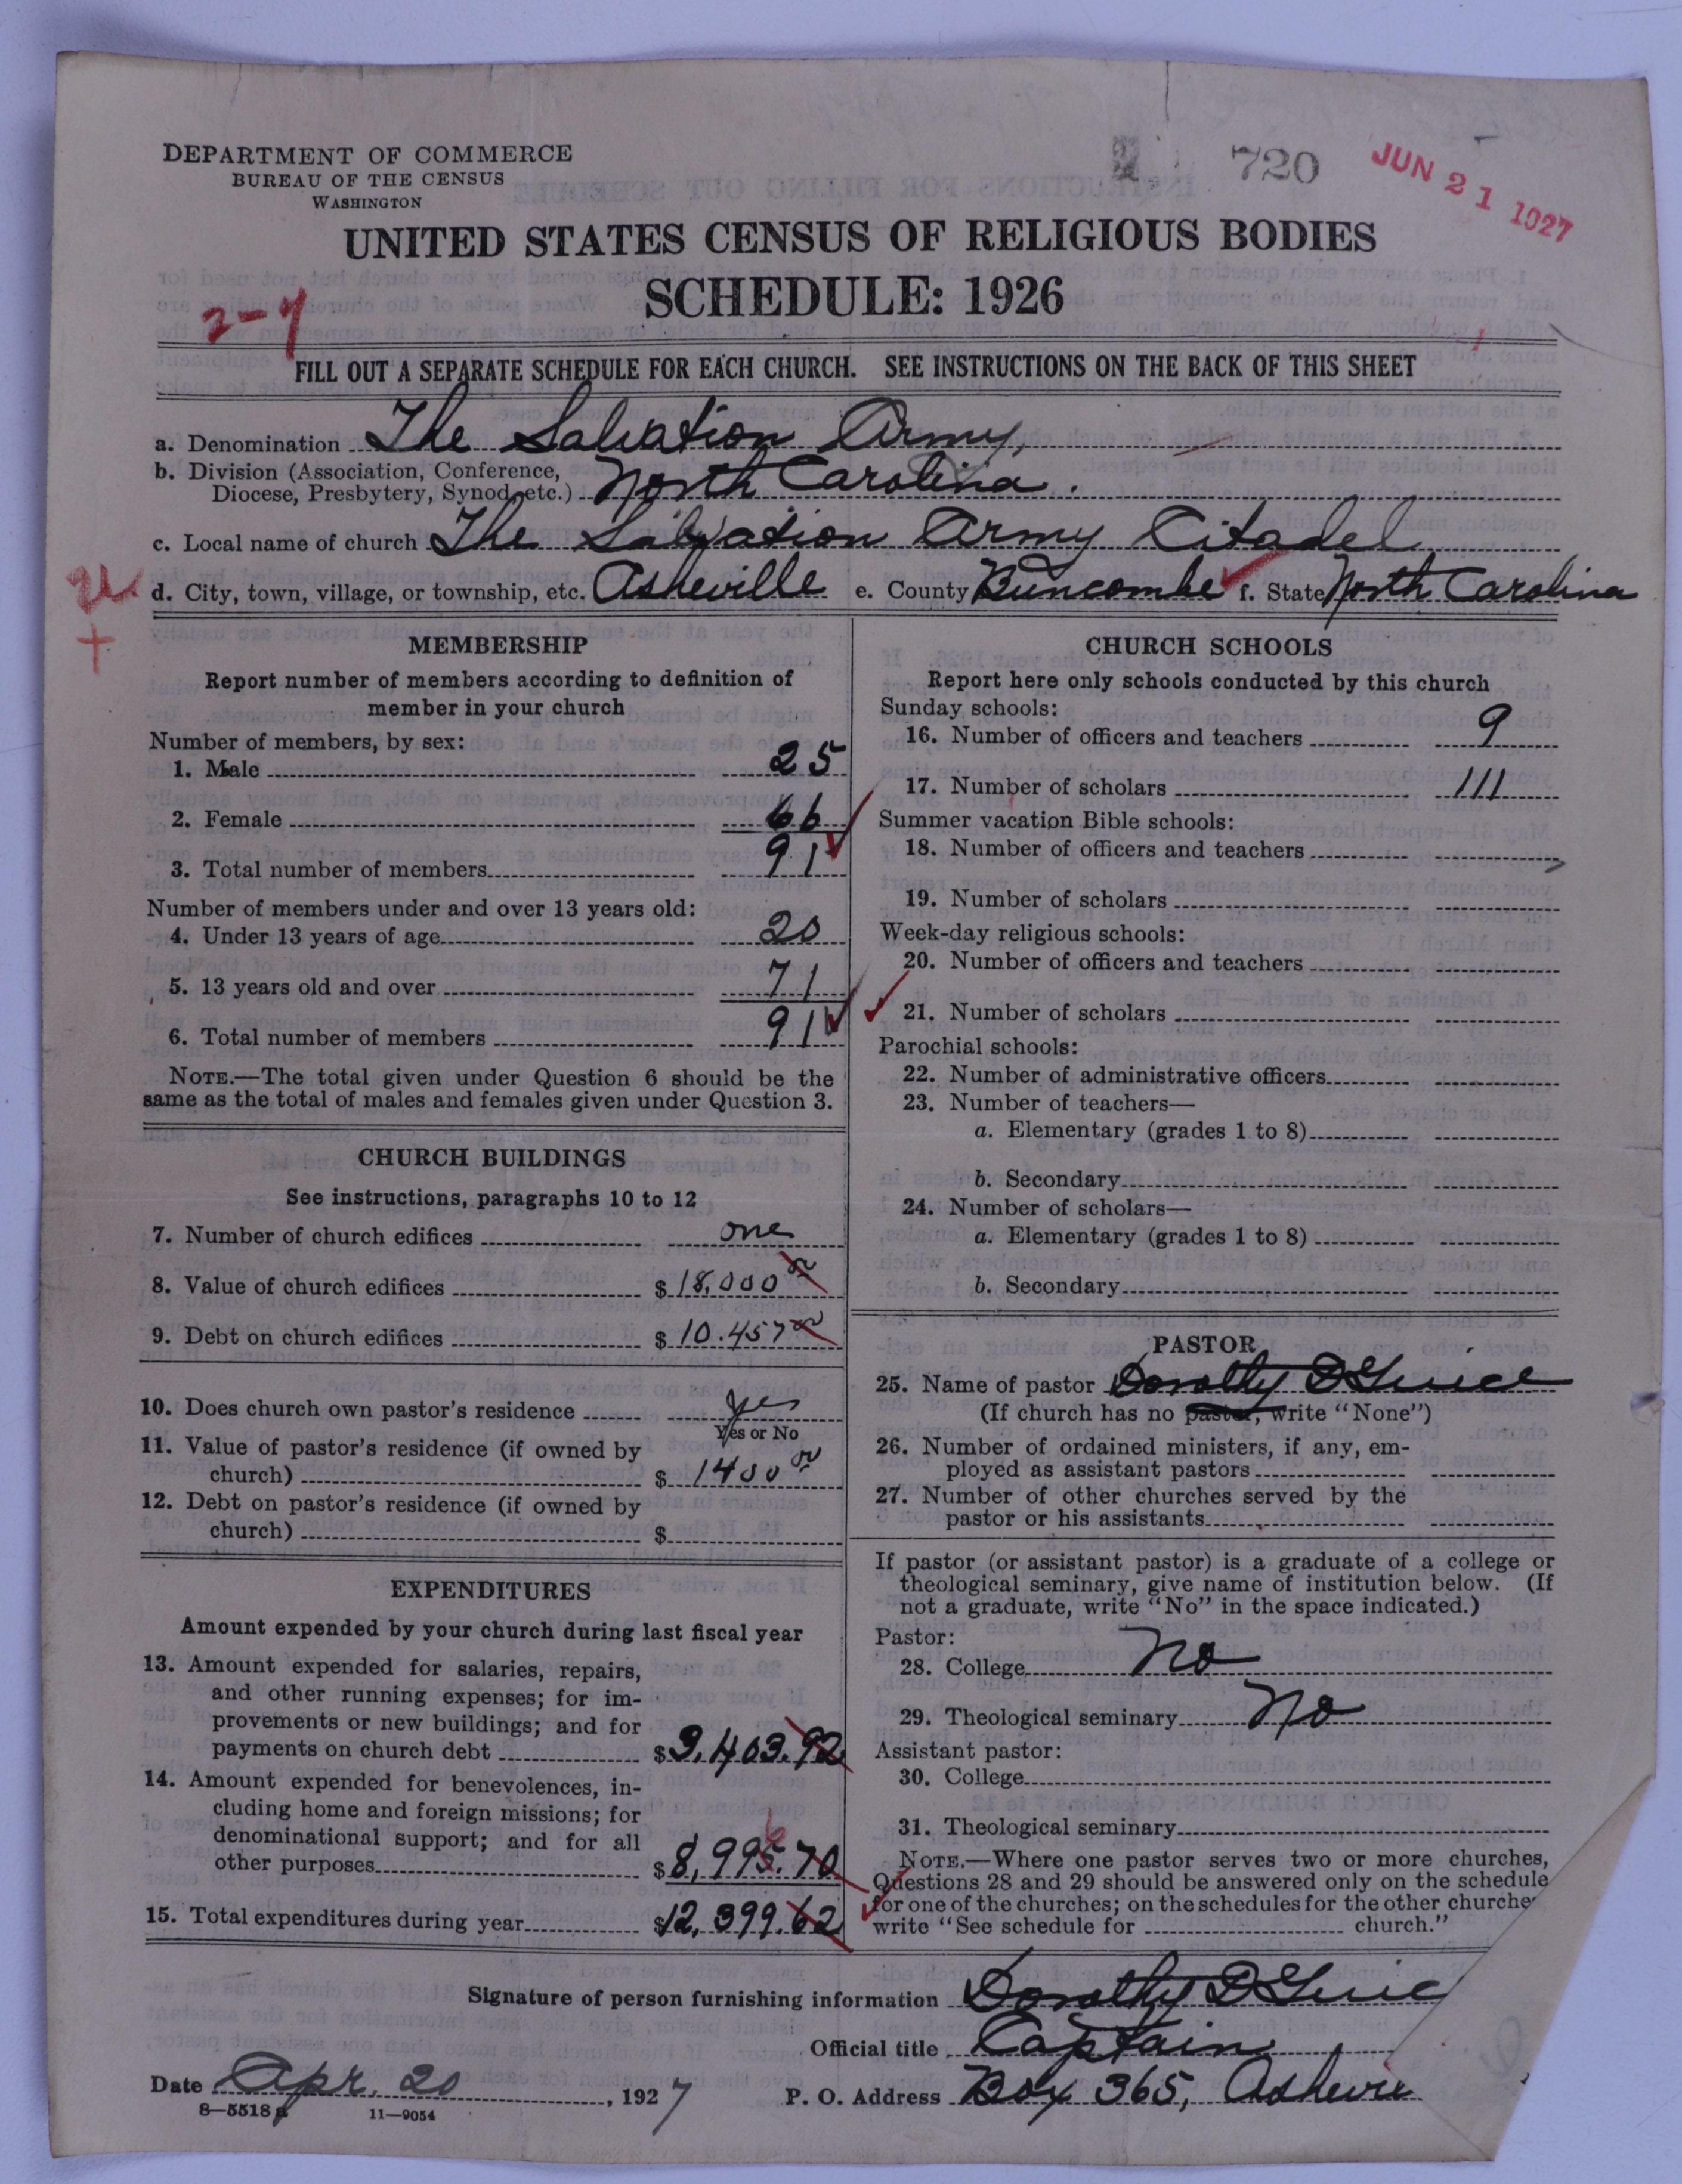 DEPARTMENT OF COMMERCE
BUREAU OF THE CENSUS
WASHINGTON
720
JUN 21 1927
UNITED STATES CENSUS OF RELIGIOUS BODIES
SCHEDULE: 1926
2-7
FILL OUT A SEPARATE SCHEDULE FOR EACH CHURCH. SEE INSTRUCTIONS ON THE BACK OF THIS SHEET
a. Denomination The Salvation Army,
b. Division (Association, Conference,
Diocese, Presbytery, Synod, etc.) North Carolina.
c. Local name of church The Salvation Army Citadel
d. City, town, village, or township, etc. Asheville e. County Buncombe f. State North Carolina
MEMBERSHIP
Report number of members according to definition of
member in your church
Number of members, by sex:
1. Male 25
2. Female 66
3. Total number of members 91
Number of members under and over 13 years old:
4. Under 13 years of age 20
5. 13 years old and over 71
6. Total number of members 91
NOTE.—The total given under Question 6 should be the
same as the total of males and females given under Question 3.
CHURCH BUILDINGS
See instructions, paragraphs 10 to 12
7. Number of church edifices one
8. Value of church edifices $ 18,000
9. Debt on church edifices $ 10.457
10. Does church own pastor's residence yes
Yes or No
11. Value of pastor's residence (if owned by
church) $ 1400
12. Debt on pastor's residence (if owned by
church) $
EXPENDITURES
Amount expended by your church during last fiscal year
13. Amount expended for salaries, repairs,
and other running expenses; for im-
provements or new buildings; and for
payments on church debt $ 3,403.92
14. Amount expended for benevolences, in-
cluding home and foreign missions; for
denominational support; and for all
other purposes $ 8,995.70
6
15. Total expenditures during year $12,399.62
CHURCH SCHOOLS
Report here only schools conducted by this church
Sunday schools:
16. Number of officers and teachers 9
17. Number of scholars 111
Summer vacation Bible schools:
18. Number of officers and teachers
19. Number of scholars
Week-day religious schools:
20. Number of officers and teachers
21. Number of scholars
Parochial schools:
22. Number of administrative officers
23. Number of teachers—
a. Elementary (grades 1 to 8)
b. Secondary
24. Number of scholars—
a. Elementary (grades 1 to 8)
b. Secondary
PASTOR
25. Name of pastor Dorothy D
(If church has no pastor, write "None")
26. Number of ordained ministers, if any, em-
ployed as assistant pastors
27. Number of other churches served by the
pastor or his assistants
If pastor (or assistant pastor) is a graduate of a college or
theological seminary, give name of institution below. (If
not a graduate, write "No" in the space indicated.)
Pastor:
28. College no
29. Theological seminary No
Assistant pastor:
30. College
31. Theological seminary
NOTE.—Where one pastor serves two or more churches,
Questions 28 and 29 should be answered only on the schedule
for one of the churches; on the schedules for the other churches
write "See schedule for church."
Signature of person furnishing information Dorothy D
Official title Captain
Date Apr. 20, 1927 P. O. Address Box 365, Ashevi
8-5518 a 11-9054